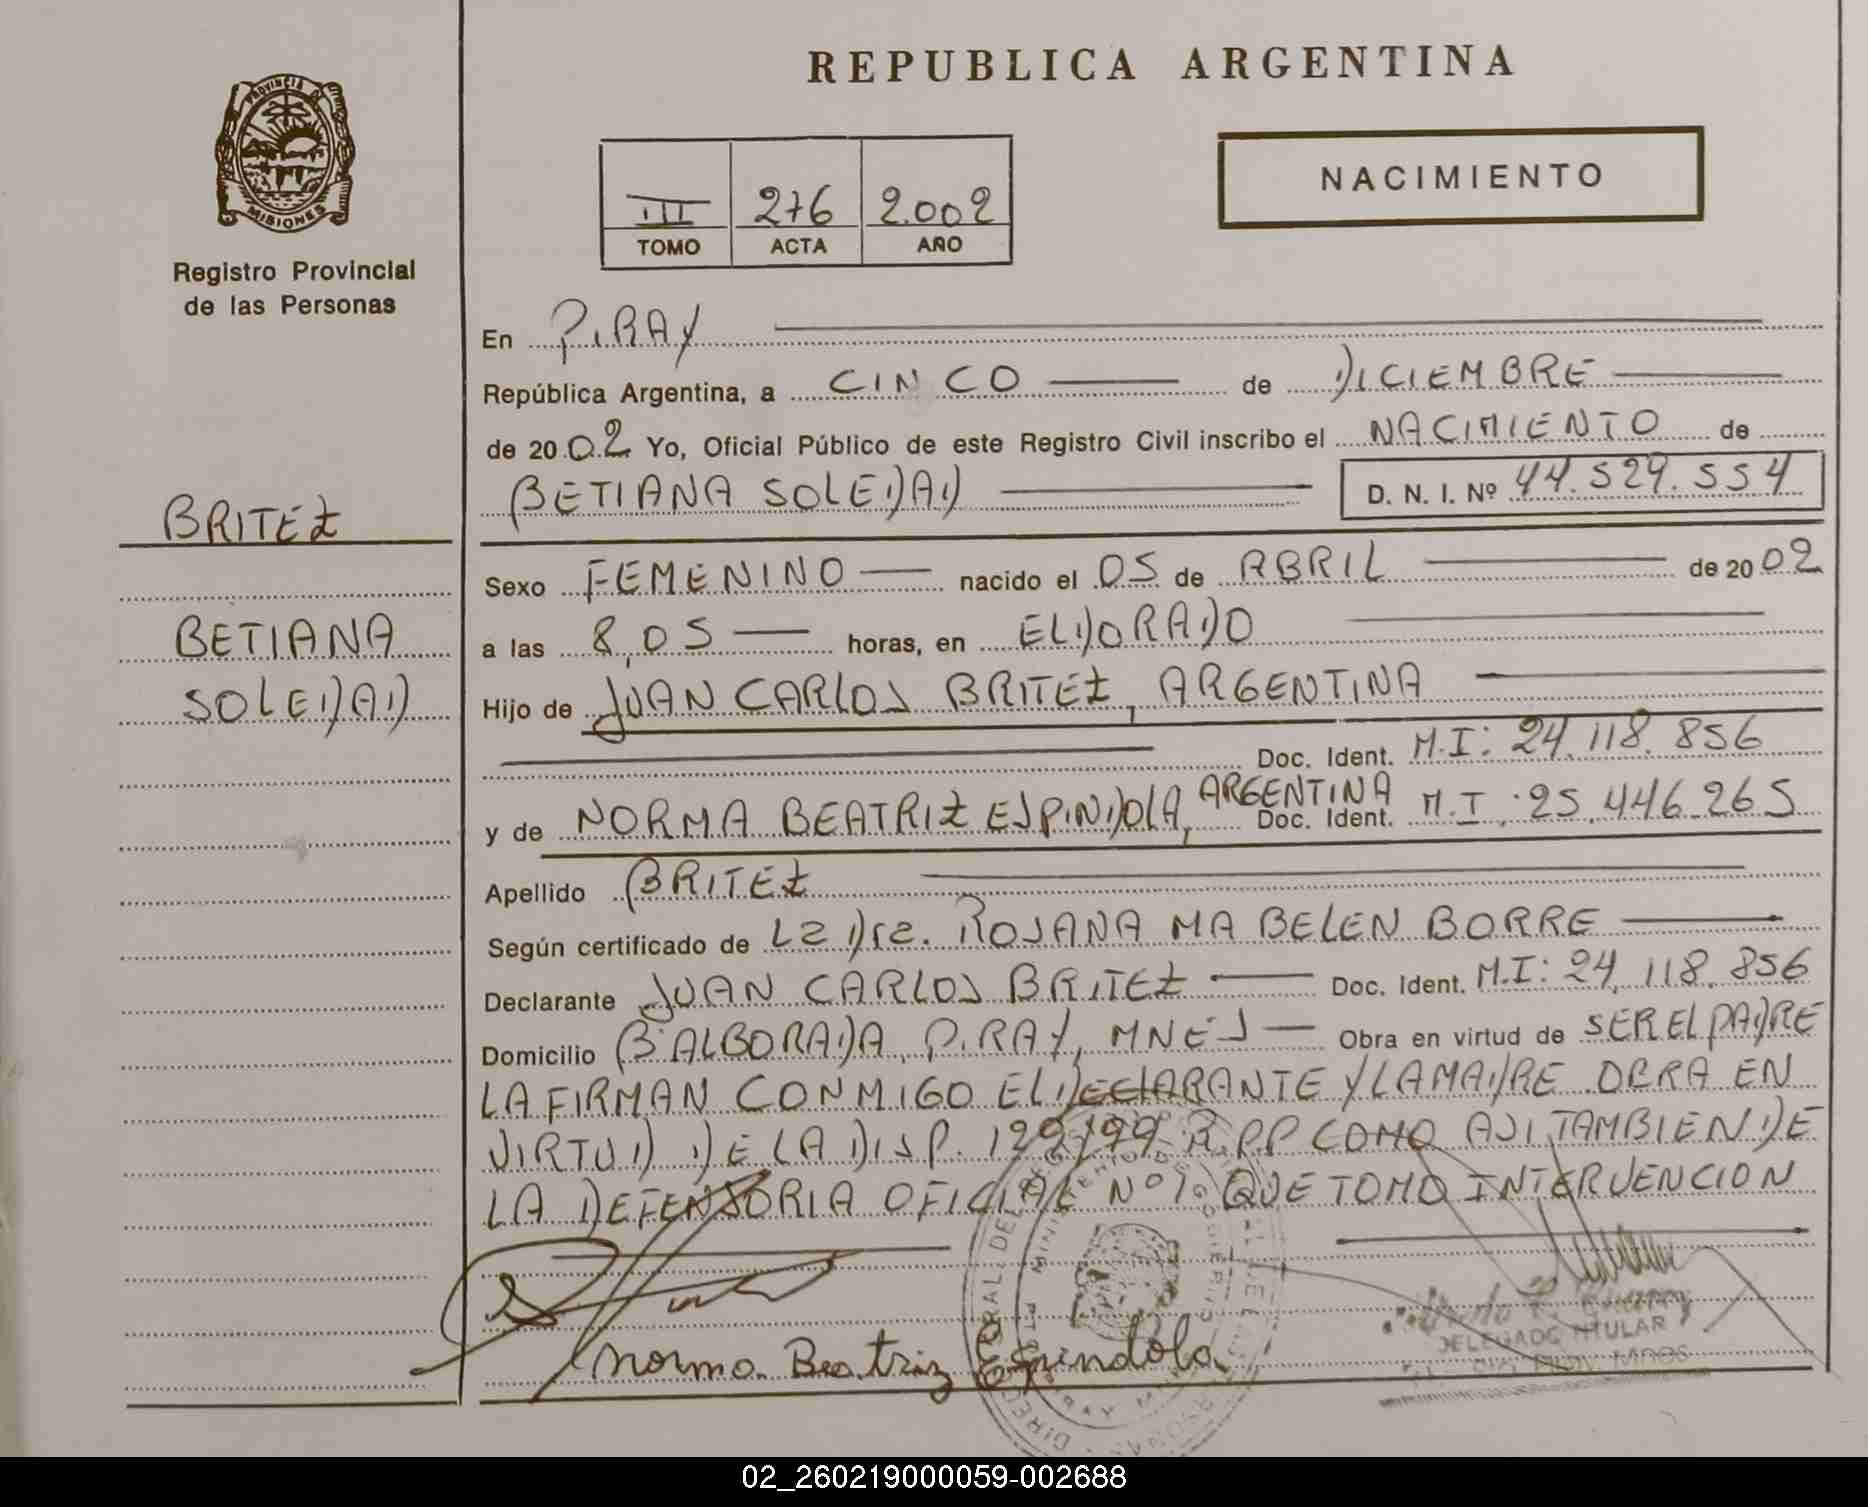 REPUBLICA ARGENTINA
PROVINCIA DE
MISIONES
Registro Provincial
de las Personas
NACIMIENTO
III 276 2.002
TOMO ACTA AÑO
En PIRAY
República Argentina, a CINCO de DICIEMBRE
de 2002 Yo, Oficial Público de este Registro Civil inscribo el NACIMIENTO de
BETIANA SOLEDAD D. N. I. Nº 44.529.554
BRITEZ
BETIANA
SOLEDAD
Sexo FEMENINO nacido el 05 de ABRIL de 2002
a las 8,05 horas, en ELDORADO
Hijo de JUAN CARLOS BRITEZ, ARGENTINA
Doc. Ident. M.I: 24.118.856
y de NORMA BEATRIZ ESPINDOLA, ARGENTINA Doc. Ident. M.I.:25.446.265
Apellido BRITEZ
Según certificado de La Dra. ROSANA MABELEN BORRE
Declarante JUAN CARLOS BRITEZ Doc. Ident. M.I: 24.118.856
Domicilio Bº ALBORADA, PIRAY, MNES Obra en virtud de SER EL PADRE
LA FIRMAN CONMIGO EL DECLARANTE Y LA MADRE OBRA EN
VIRTUD DE LA DISP. 129/99 R.P.P COMO ASI TAMBIEN DE
LA DEFENSORIA OFICIAL Nº 1. QUE TOMO INTERVENCION
Norma Beatriz Espindola
DELEGADO TITULAR
02_260219000059-002688